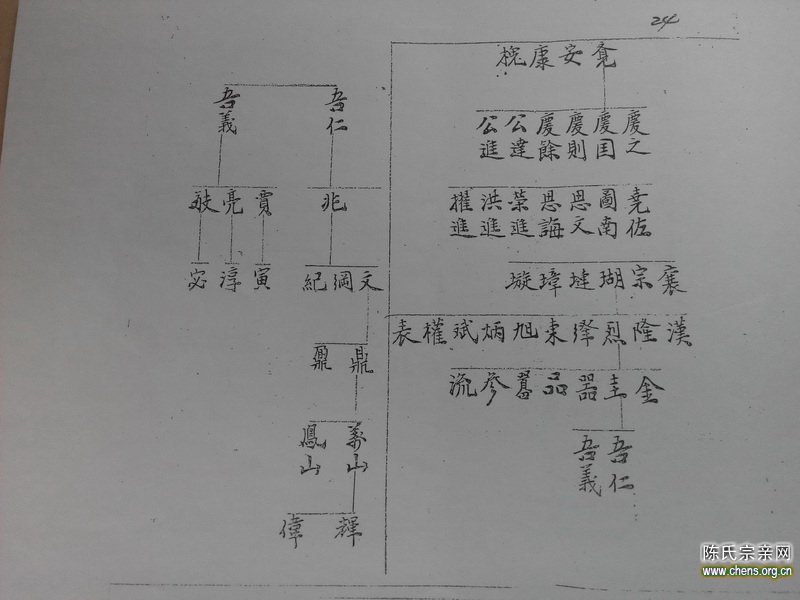 24
安康槐
慶之 慶囯 慶則 慶餘 公達 公進
堯佐 圖南 思文 思誨 榮進 洪進 擢進
襄宗瑚璉璋璇
漢隆烈繹東旭炳斌權表
金圭器品囂參流
吾仁 吾義
吾仁 吾義
兆 亮敏
文綱紀 寅淳宓
鼎鼐
萬山 鳳山
輝偉
陈氏宗亲网
www.chens.org.cn